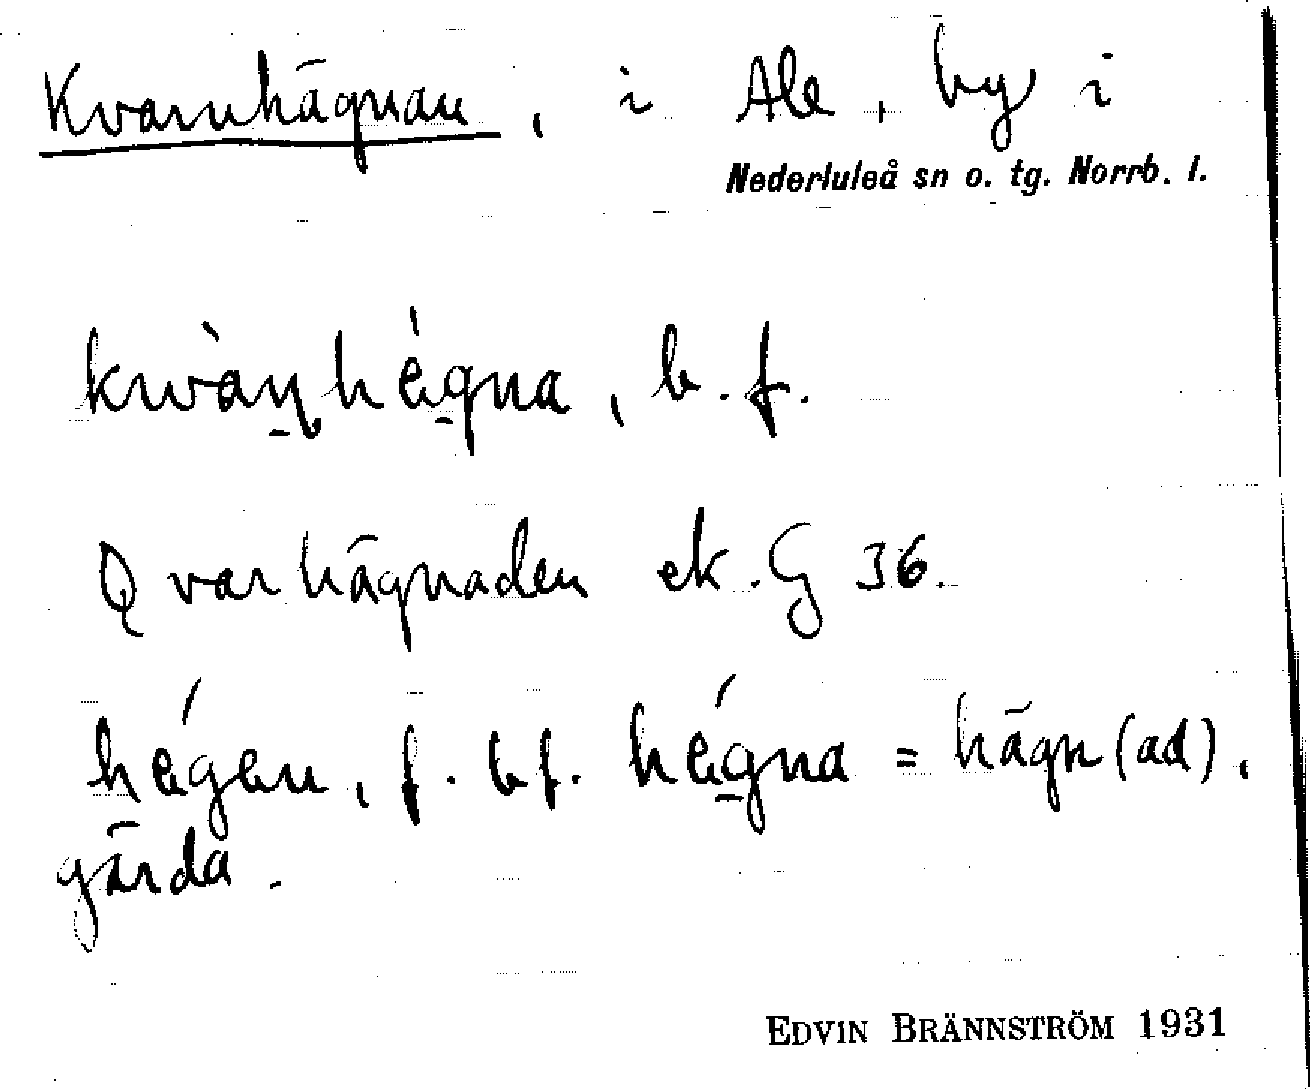 Kvarnhägnan, i Ale, by i
Nederluleå sn o. tg. Norrb. l.
kwàṇhégna, b.f.
Qvarhägnaden ek. G 36.
hégen, f. bf. hégna = hägn(ad),
gärda.
EDVIN BRÄNNSTRÖM 1931